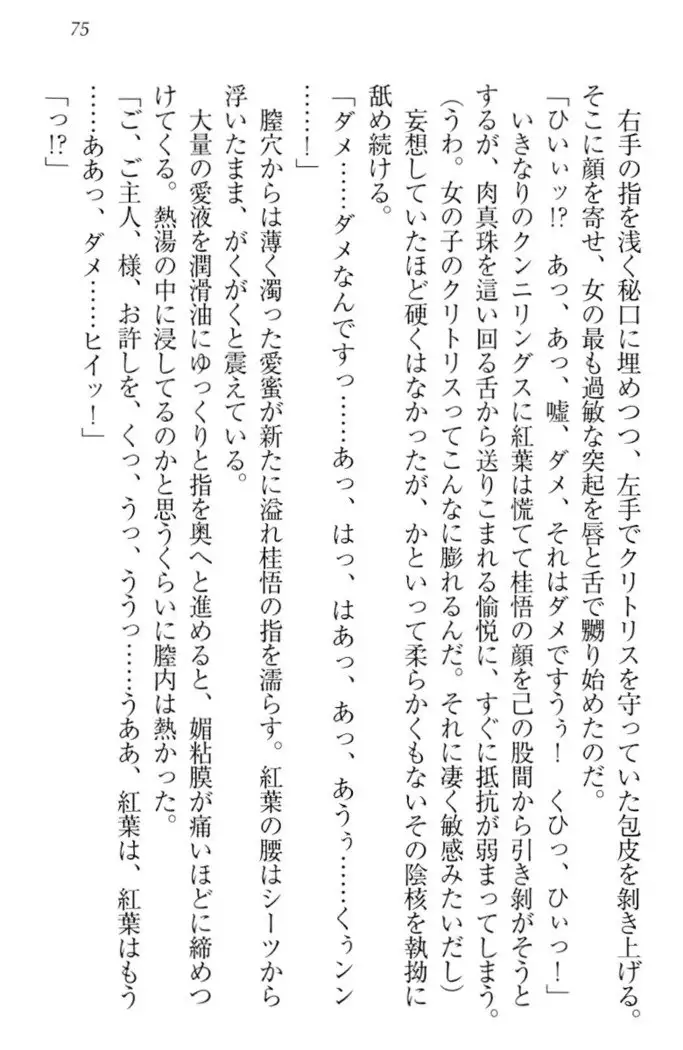 75
右手の指を浅く秘口に埋めつつ、左手でクリトリスを守っていた包皮を剝き上げる。
そこに顔を寄せ、女の最も過敏な突起を唇と舌で嬲り始めたのだ。
「ひいぃッ!?　あっ、あっ、嘘、ダメ、それはダメですうぅ！　くひっ、ひぃっ！」
いきなりのクンニリングスに紅葉は慌てて桂悟の顔を己の股間から引き剝がそうと
するが、肉真珠を這い回る舌から送りこまれる愉悦に、すぐに抵抗が弱まってしまう。
（うわ。女の子のクリトリスってこんなに膨れるんだ。それに凄く敏感みたいだし）
妄想していたほど硬くはなかったが、かといって柔らかくもないその陰核を執拗に
舐め続ける。
「ダメ……ダメなんですっ……あっ、はっ、はあっ、あっ、あうぅ……くぅンン
……！」
膣穴からは薄く濁った愛蜜が新たに溢れ桂悟の指を濡らす。紅葉の腰はシーツから
浮いたまま、がくがくと震えている。
大量の愛液を潤滑油にゆっくりと指を奥へと進めると、媚粘膜が痛いほどに締めつ
けてくる。熱湯の中に浸してるのかと思うくらいに膣内は熱かった。
「ご、ご主人、様、お許しを、くっ、うっ、ううっ……うああ、紅葉は、紅葉はもう
……ああっ、ダメ……ヒイッ！」
「っ!?」